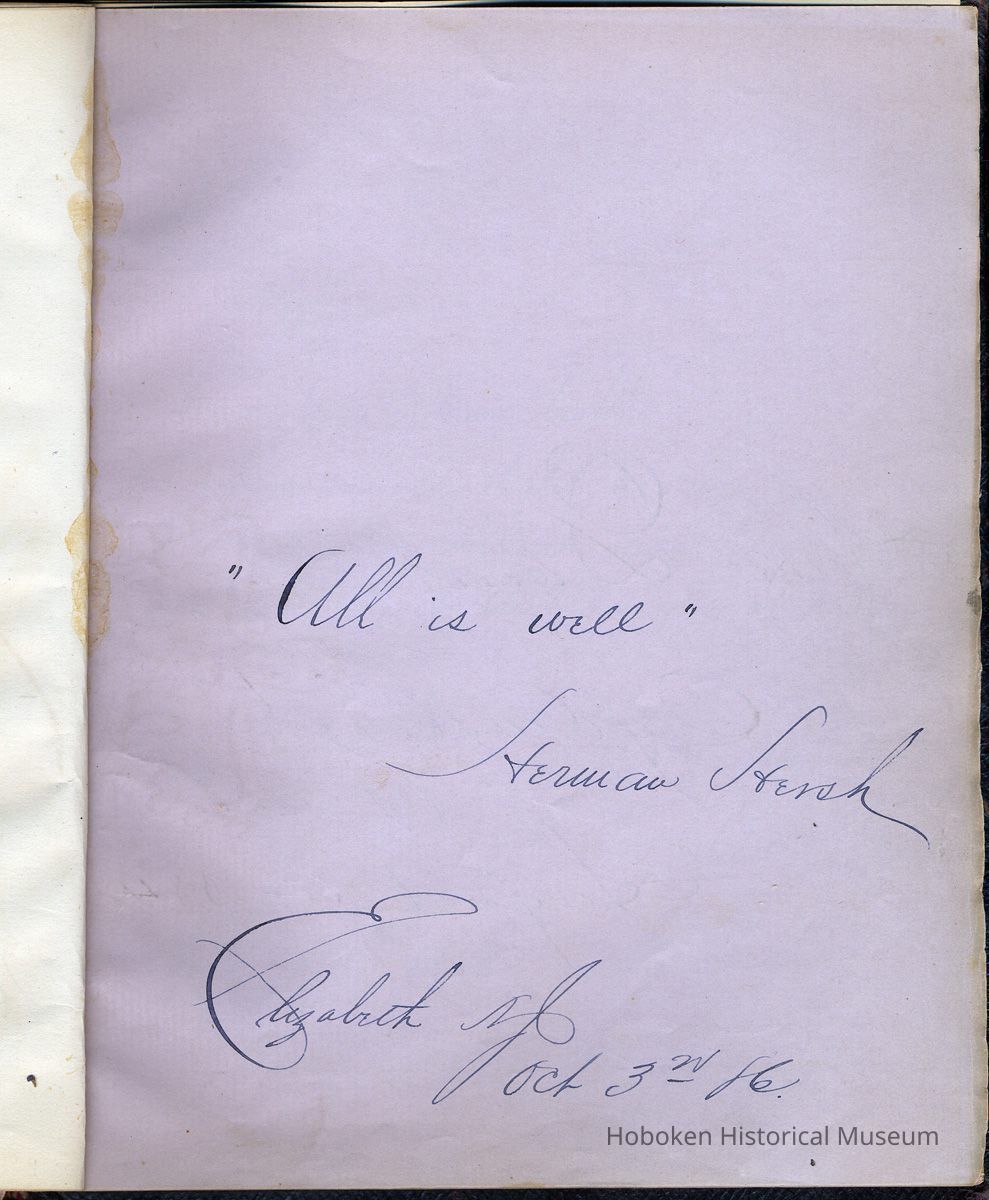 "All is well"
Herman Hersh
Elizabeth NJ
Oct 3rd 86.
Hoboken Historical Museum